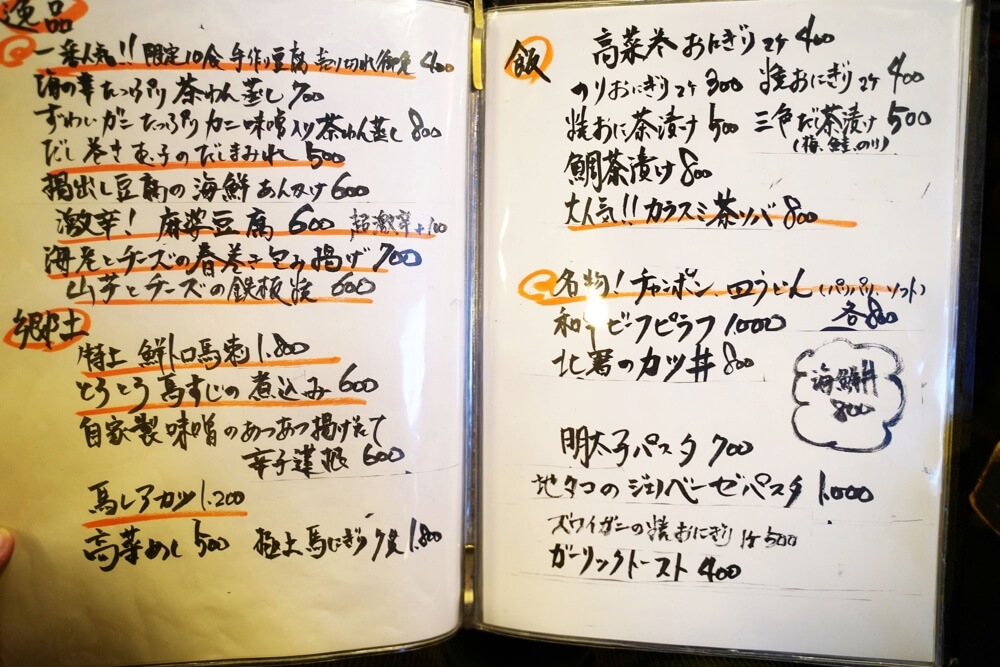 逸品
一番人気!! 限定10食 手作り豆腐 売り切れ御免 400
海の幸たっぷり 茶わん蒸し 700
ずわいガニ たっぷり カニ味噌入り 茶わん蒸し 800
だし巻き 500
揚出し豆腐の海鮮あんかけ 600
激辛! 麻婆豆腐 600 超激辛+100
海老とチーズの春巻き包み揚げ 700
山芋とチーズの鉄板焼 600
郷土
特上 鮮トロ馬刺 1.800
とろとろ馬すじの煮込み 600
自家製味噌のあつあつ揚げたて
辛子蓮根 600
馬レアカツ 1.200
高菜めし 500 極上馬にぎり 1.800
飯
高菜巻おにぎり 2ケ 400
のりおにぎり 2ケ 300 焼おにぎり 2ケ 400
焼おに茶漬け 500 三色だし茶漬け 500
(梅、鮭、のり)
鯛茶漬け 800
大人気!! カラスミ茶ソバ 800
名物! チャンポン、皿うどん (パリパリ、ソフト)
各800
和牛ビーフピラフ 1000
北署のカツ丼 800
海鮮丼
800
明太子パスタ 700
地タコのジェノベーゼパスタ 1.000
ズワイガニの焼おにぎり 1ケ 500
ガーリックトースト 400